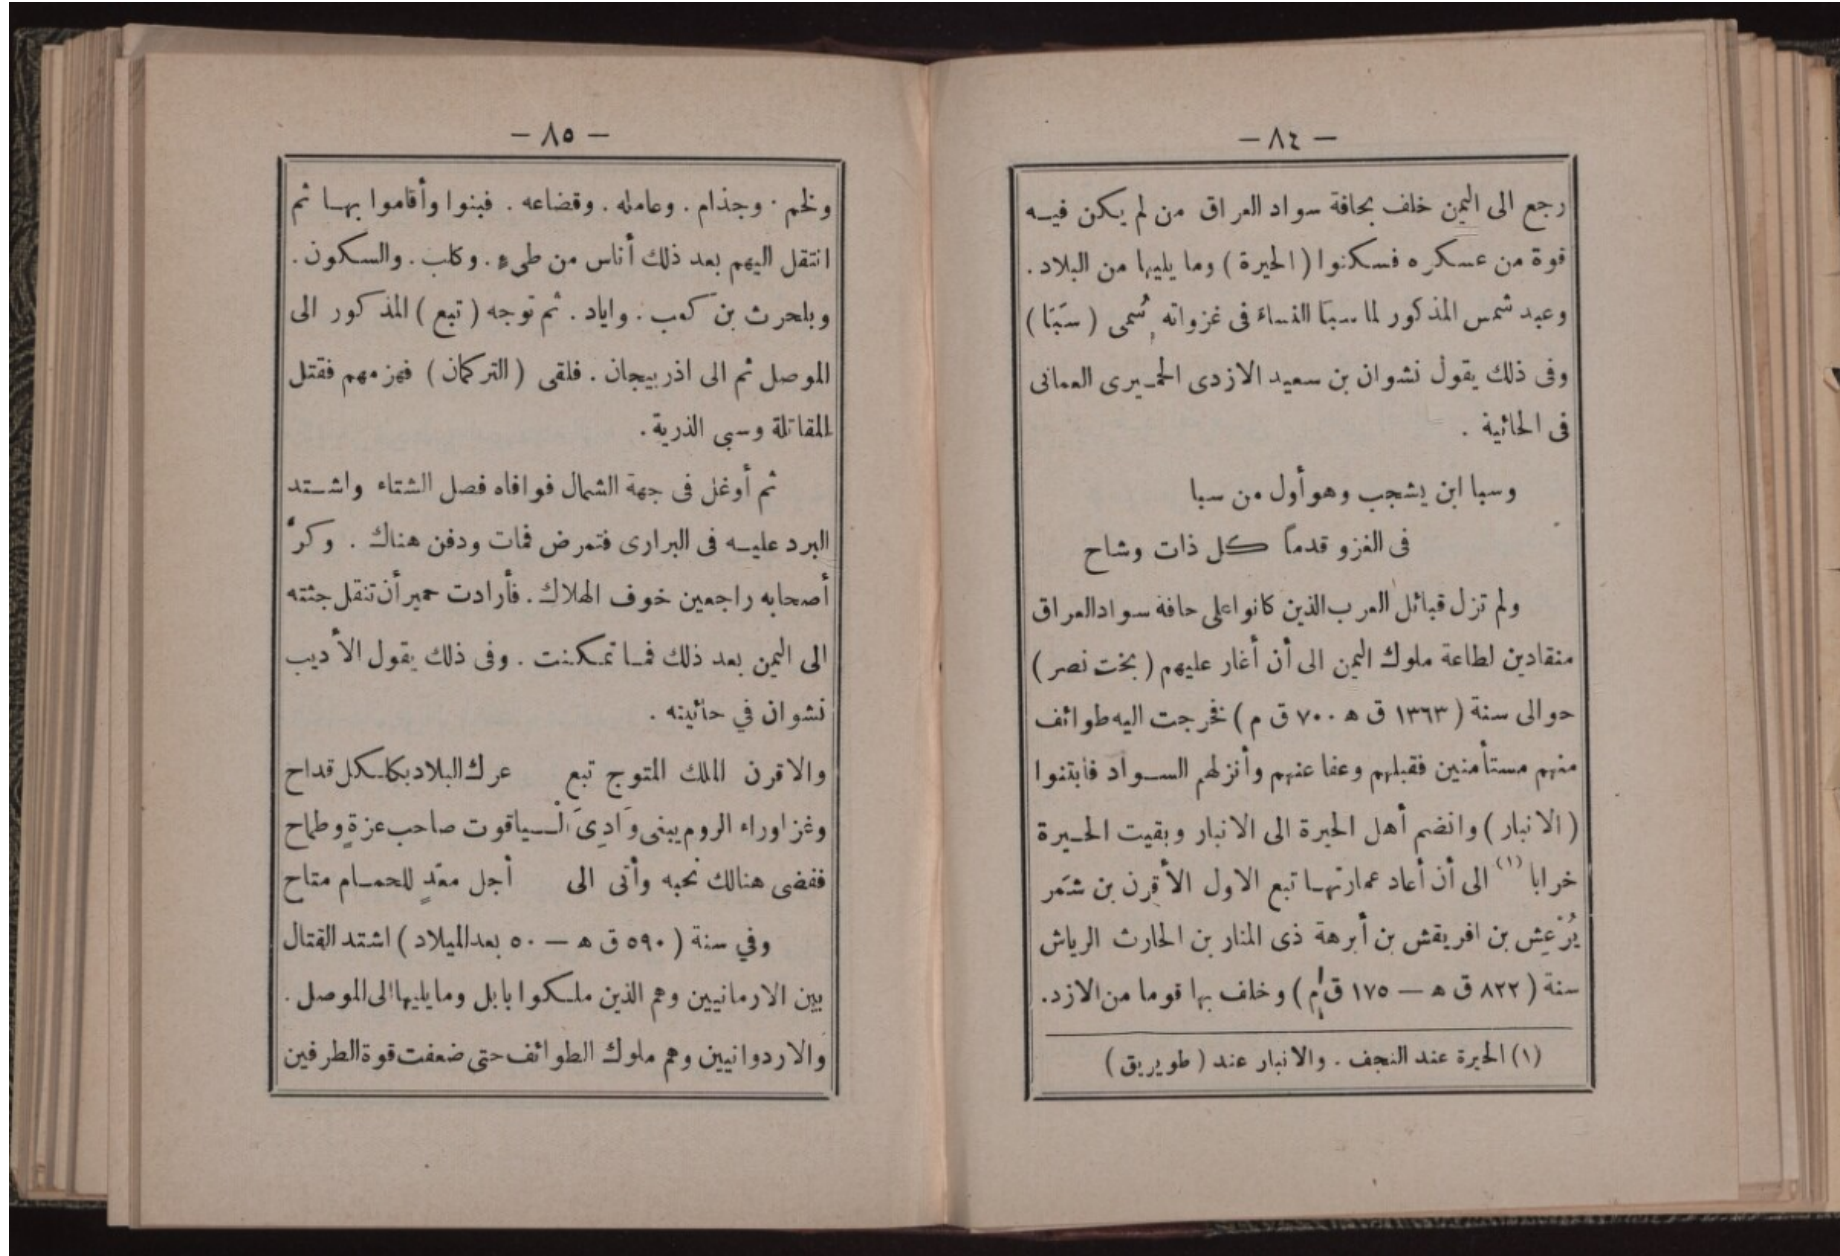 — ٨٤ —
رجع الى اليمن خلف بحافة سواد العراق من لم يكن فيه
قوة من عسكره فسكنوا ( الحيرة ) وما يليها من البلاد .
وعبد شمس المذكور لما سبَا النساءَ فى غزواته سُمى ( سَبَا )
وفى ذلك يقول نشوان بن سعيد الازدى الحميرى العمانى
فى الحائية .
وسبا ابن يشجب وهو أول من سبا
فى الغزو قدماً كل ذات وشاح
ولم تزل قبائل العرب الذين كانوا على حافة سواد العراق
منقادين لطاعة ملوك اليمن الى أن أغار عليهم ( بخت نصر )
حوالى سنة ( ١٣٦٣ ق ه ٧٠٠ ق م ) فخرجت اليه طوائف
منهم مستأمنين فقبلهم وعفا عنهم وأنزلهم السواد فابتنوا
( الانبار ) وانضم أهل الحيرة الى الانبار وبقيت الحيرة
خرابا (١) الى أن أعاد عمارتها تبع الاول الأقرن بن شمَر
يُرْعِش بن افريقش بن أبرهة ذى المنار بن الحارث الرياش
سنة ( ٨٢٢ ق ه — ١٧٥ ق م ) وخلف بها قوما من الازد .
(١) الحيرة عند النجف . والانبار عند ( طويريق )
— ٨٥ —
ولخم . وجذام . وعامله . وقضاعه . فبنوا وأقاموا بها ثم
انتقل اليهم بعد ذلك أناس من طيء . وكلب . والسكون .
وبلحرث بن كعب . واياد . ثم توجه ( تبع ) المذكور الى
الموصل ثم الى اذربيجان . فلقى ( التركمان ) فهزمهم فقتل
المقاتلة وسبي الذرية .
ثم أوغل فى جهة الشمال فوافاه فصل الشتاء واشتد
البرد عليه فى البرارى فتمرض فمات ودفن هناك . وكرَّ
أصحابه راجعين خوف الهلاك . فأرادت حمير أن تنقل جثته
الى اليمن بعد ذلك فما تمكنت . وفى ذلك يقول الأديب
نشوان في حائيته .
والاقرن الملك المتوج تبع عرك البلاد بكلكل قداح
وغزا وراء الروم يبنى وَادِىَ الْياقوت صاحب عزةٍ وطماح
فقضى هنالك نحبه وأتى الى أجل معَدٍ للحمام متاح
وفي سنة ( ٥٩٠ ق ه — ٥٠ بعد الميلاد ) اشتد القتال
بين الارمانيين وهم الذين ملكوا بابل وما يليها الى الموصل .
والاردوانيين وهم ملوك الطوائف حتى ضعفت قوة الطرفين